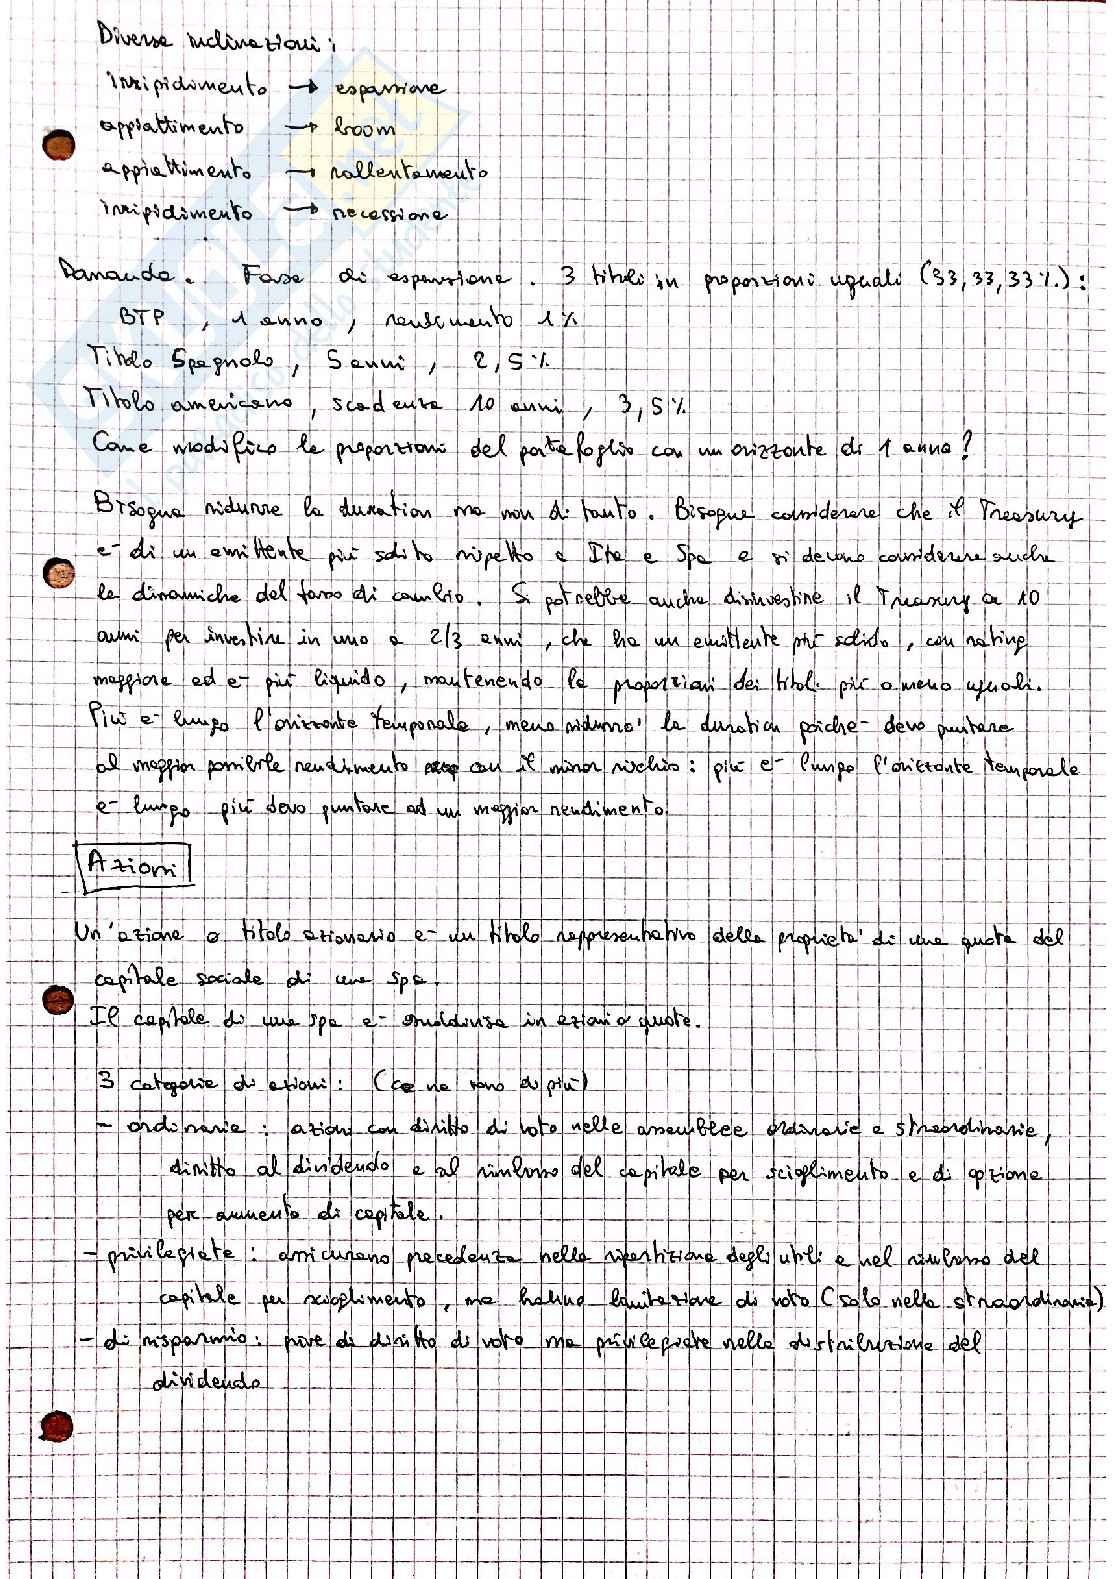 Diverse inclinazioni:
irripidimento → espansione
appiattimento → boom
appiattimento → rallentamento
irripidimento → recessione
Domanda. Fase di espansione. 3 titoli in proporzioni uguali (33,33,33%):
BTP, 1 anno, rendimento 1%
Titolo Spagnolo, 5 anni, 2,5%
Titolo americano, scadenza 10 anni, 3,5%
Come modifico le proporzioni del portafoglio con un orizzonte di 1 anno?
Bisogna ridurre la duration ma non di tanto. Bisogna considerare che il Treasury
è di un emittente più solido rispetto a Ita e Spa e si devono considerare anche
le dinamiche del tasso di cambio. Si potrebbe anche disinvestire il Treasury a 10
anni per investire in uno a 2/3 anni, che ha un emittente più solido, con rating
maggiore ed è più liquido, mantenendo le proporzioni dei titoli più o meno uguali.
Più è lungo l'orizzonte temporale, meno ridurrò la duration poichè devo puntare
al maggior possibile rendimento con il minor rischio: più è lungo l'orizzonte temporale
è lungo più devo puntare ad un maggior rendimento.
Azioni
Un'azione o titolo azionario è un titolo rappresentativo della proprietà di una quota del
capitale sociale di una spa.
Il capitale di una spa è suddiviso in azioni o quote.
3 categorie di azioni: (ce ne sono di più)
- ordinarie: azioni con diritto di voto nelle assemblee ordinarie e straordinarie,
diritto al dividendo e al rimborso del capitale per scioglimento e di opzione
per aumento di capitale.
- privilegiate: assicurano precedenza nella ripartizione degli utili e nel rimborso del
capitale per scioglimento, ma hanno limitazione di voto (solo nella straordinaria)
- di risparmio: prive di diritto di voto ma privilegiate nella distribuzione del
dividendo